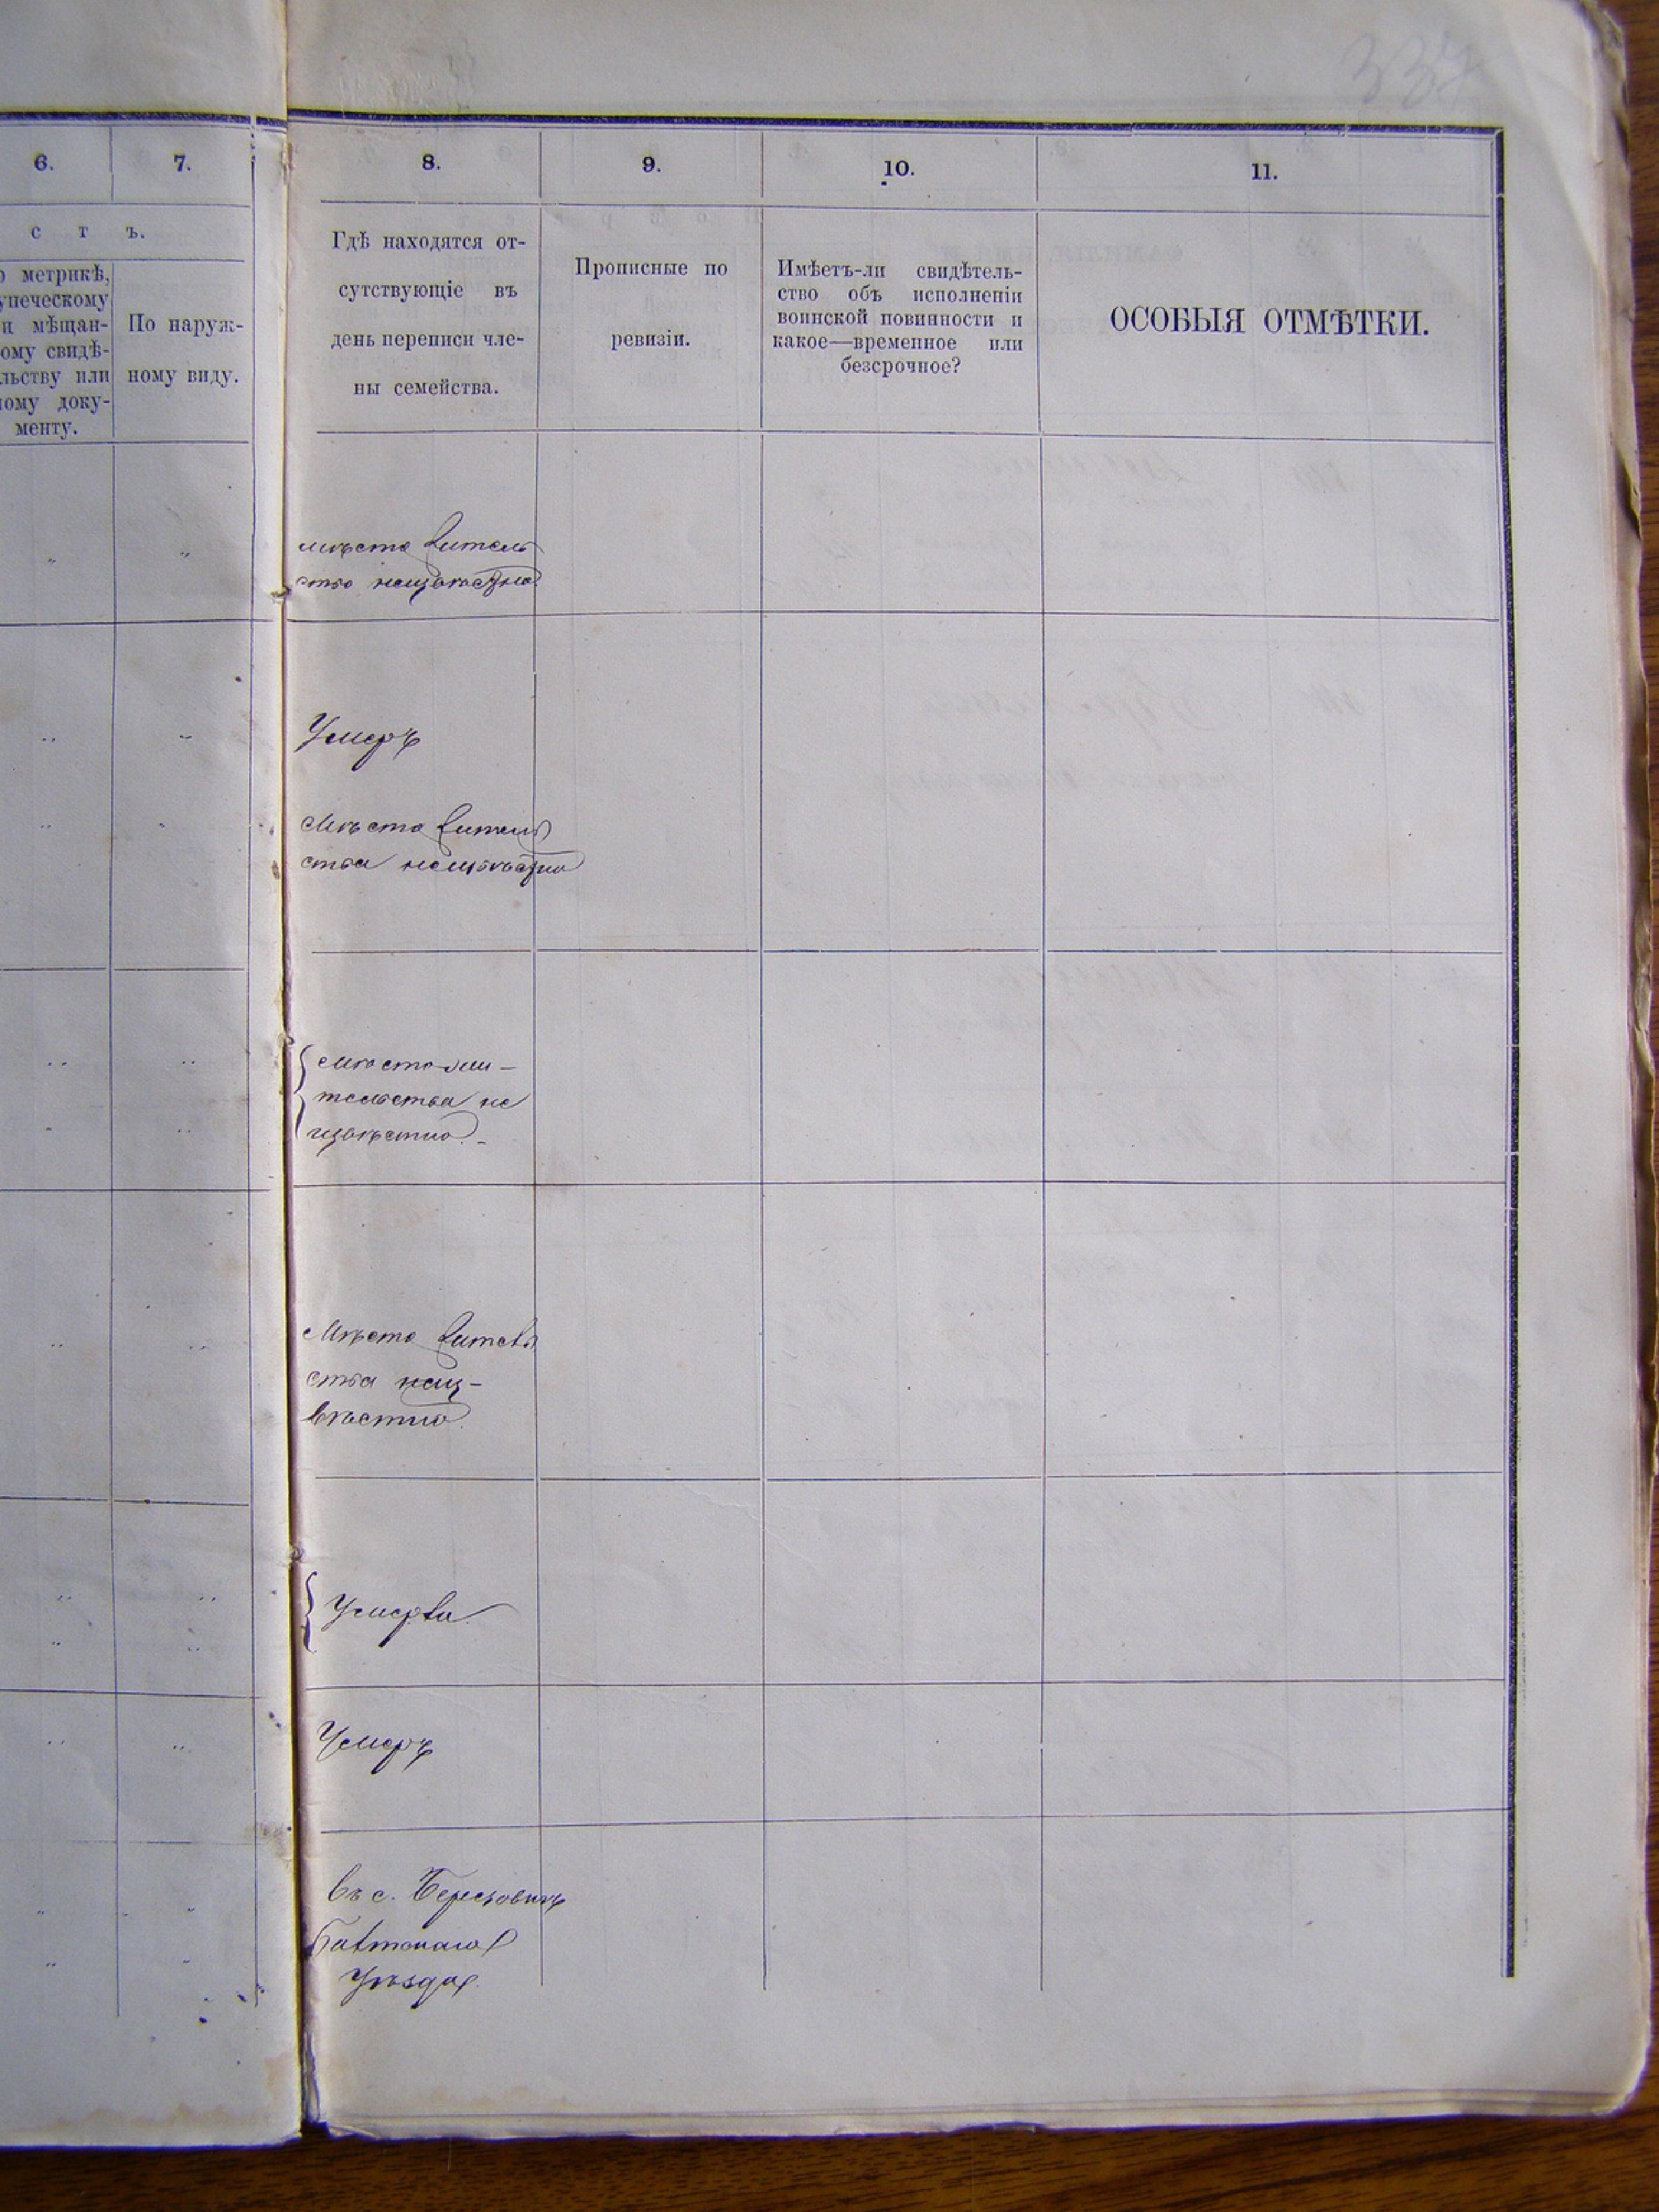 337
6.
7.
8.
9.
10.
11.
с т ъ.
метрикѣ,
упеческому
и мѣщан-
ому свидѣ-
льству или
ому доку-
менту.
По наруж-
ному виду.
Гдѣ находятся от-
сутствующіе въ
день переписи чле-
ны семейства.
Прописные по
ревизіи.
Имѣетъ-ли свидѣтель-
ство объ исполненіи
воинской повинности и
какое—временное или
безсрочное?
ОСОБЫЯ ОТМѢТКИ.
мѣсто житель
ство неизвѣстно
Умеръ
Мѣсто житель
ства неизвѣстно
Мѣсто жи-
тельства не
извѣстно. -
Мѣсто житель
ства неиз-
вѣстно.
Умерли
Умеръ
Въ с. Березовкѣ
Балтскаго
Уѣзда.